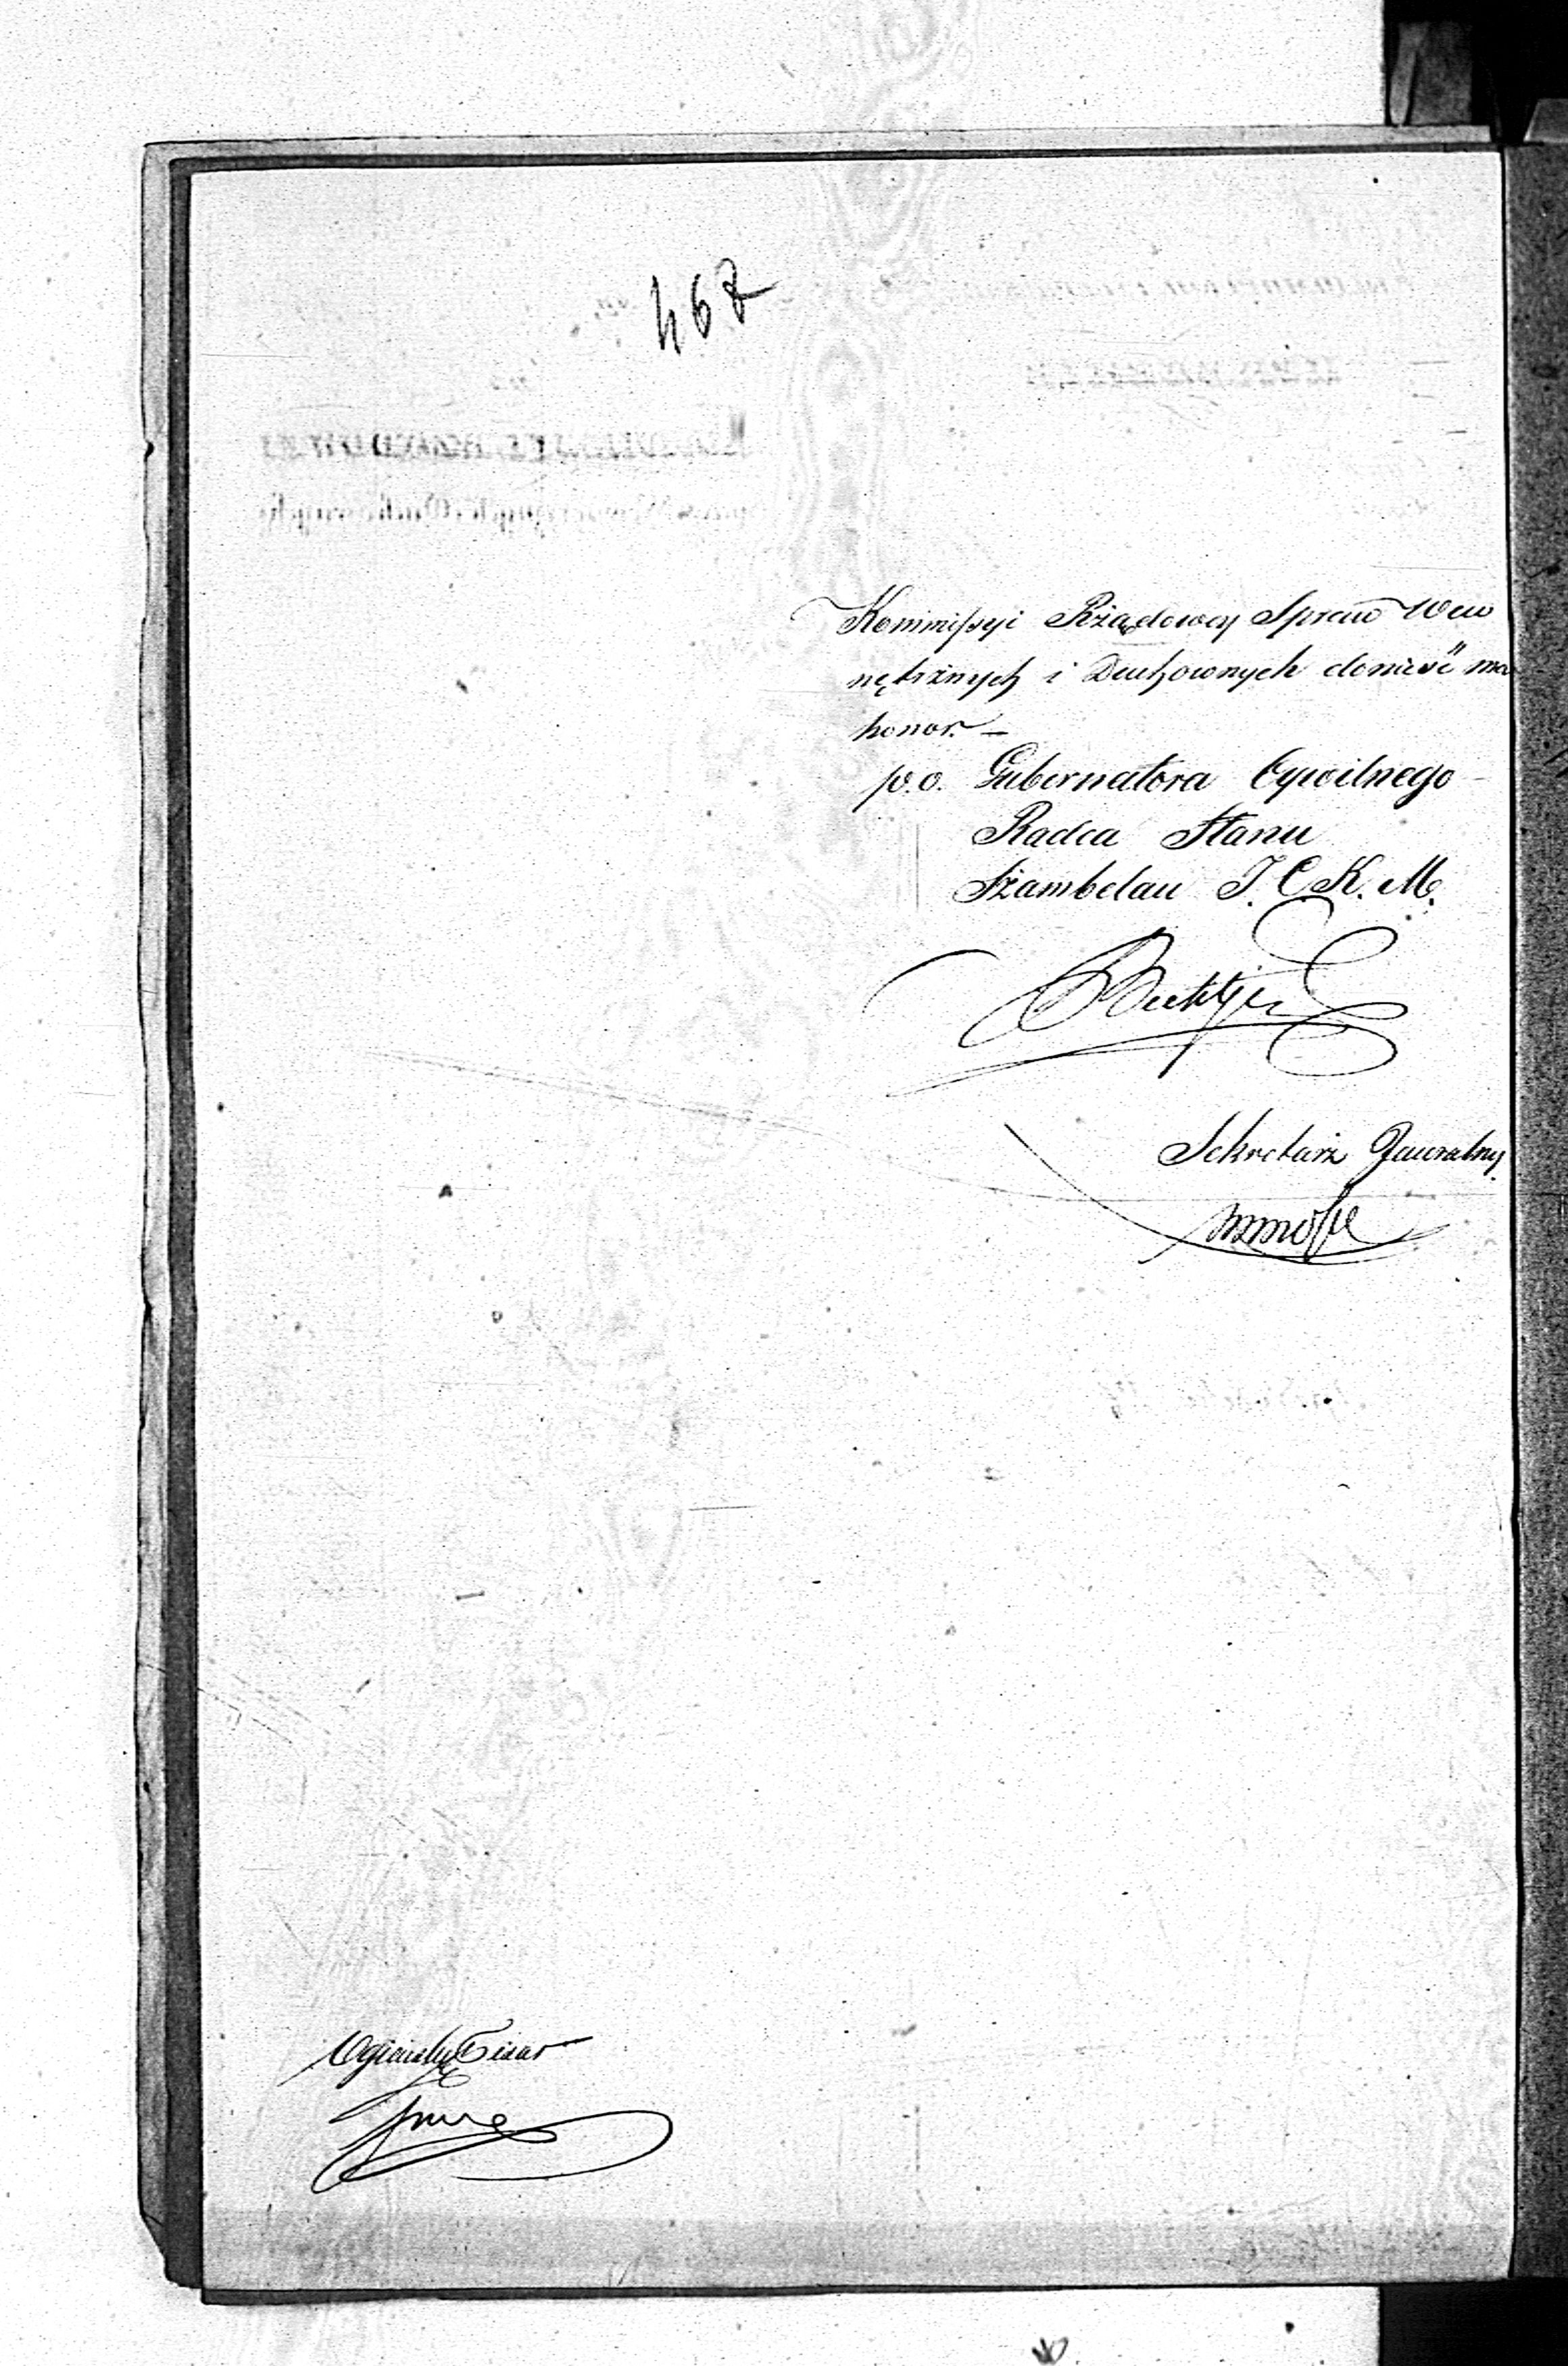 467
Kommissyi Rządowey Spraw Wew
nętrznych i Duchownych donieść ma
honor. —
p.o. Gubernatora Cywilnego
Radca Stanu
Szambelan J. C. K. M.
Sekretarz Jeneralny